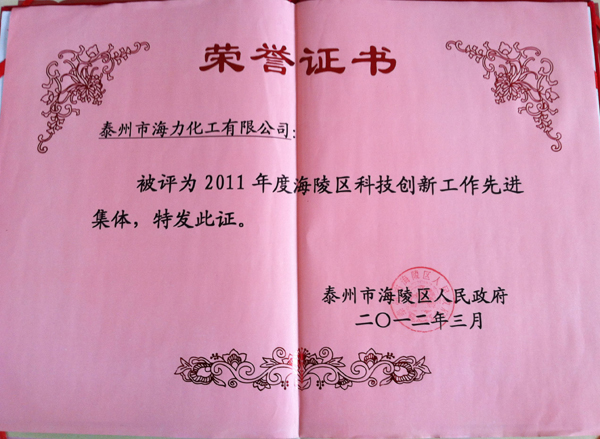 荣誉证书
泰州市海力化工有限公司:
被评为 2011 年度海陵区科技创新工作先进
集体，特发此证。
泰州市海陵区人民政府
二〇一二年三月